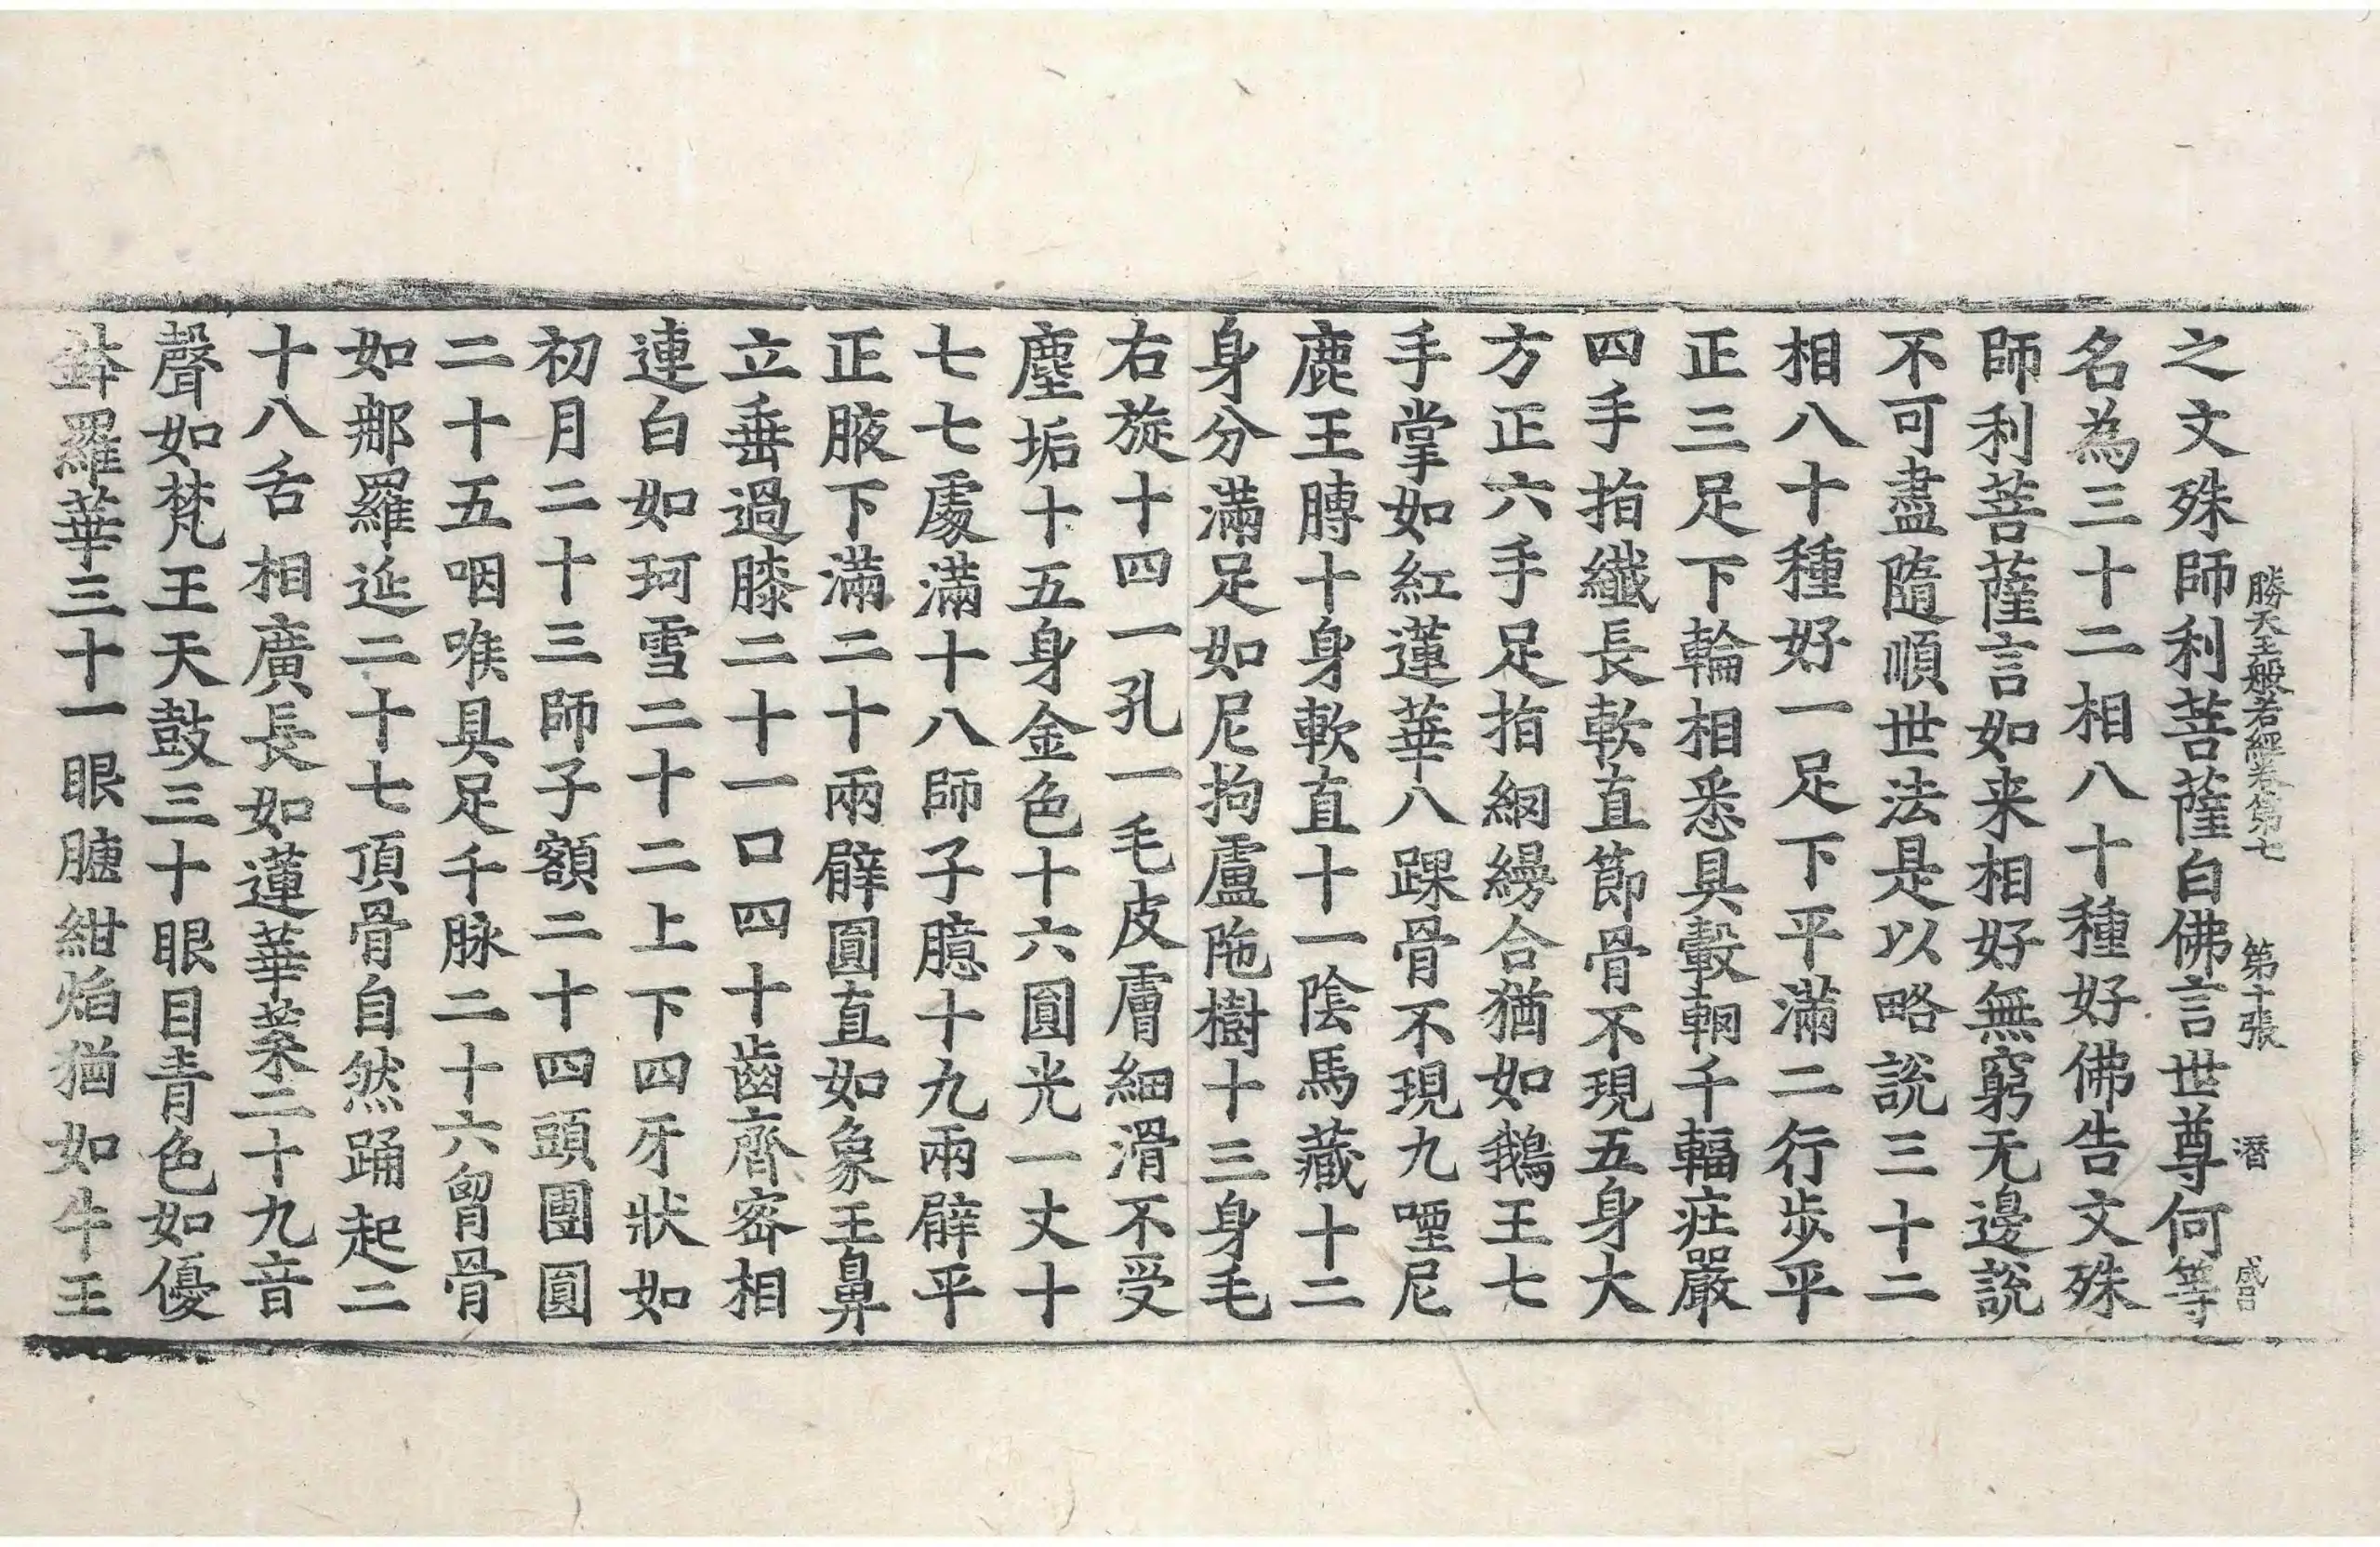 勝天王般若經卷第七 第十張 潛 盛呂
之文殊師利菩薩白佛言世尊何等
名為三十二相八十種好佛告文殊
師利菩薩言如来相好無窮无邊說
不可盡隨順世法是以略說三十二
相八十種好一足下平滿二行步平
正三足下輪相悉具轂輞千輻莊嚴
四手指纖長軟直節骨不現五身大
方正六手足指網縵合猶如鵝王七
手掌如紅蓮華八踝骨不現九堙尼
鹿王膞十身軟直十一陰馬藏十二
身分滿足如尼拘盧陁樹十三身毛
右旋十四一孔一毛皮膚細滑不受
塵垢十五身金色十六圓光一丈十
七七處滿十八師子臆十九兩臂平
正腋下滿二十兩臂圓直如象王鼻
立垂過膝二十一口四十齒齊密相
連白如珂雪二十二上下四牙狀如
初月二十三師子額二十四頭團圓
二十五咽喉具足千脉二十六胷骨
如那羅延二十七頂骨自然踊起二
十八舌相廣長如蓮華葉二十九音
聲如梵王天鼓三十眼目青色如優
鉢羅華三十一眼䀹紺焰猶如牛王